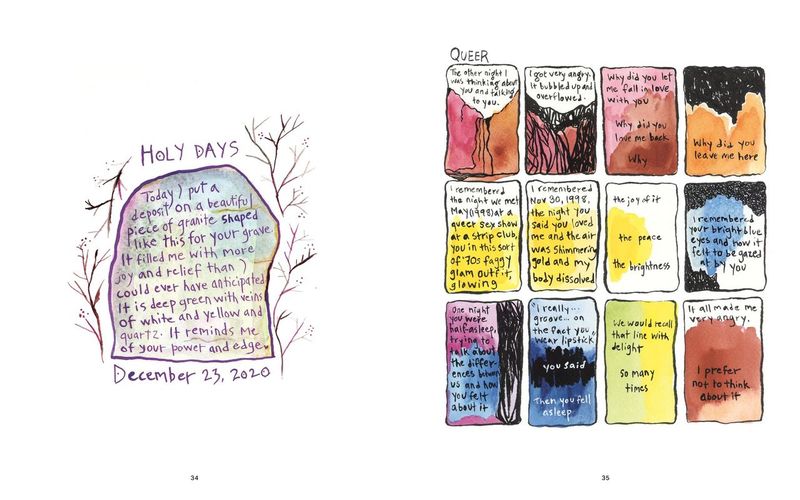 HOLY DAYS
Today I put a
deposit on a beautiful
piece of granite shaped
like this for your grave
It filled me with more
joy and relief than I
could ever have anticipated
It is deep green with veins
of white and yellow and
quartz. It reminds me
of your power and edge.
December 23, 2020
34
QUEER
The other night I
was thinking about
you and talking
to you.
I got very angry.
It bubbled up and
overflowed.
Why did you let
me fall in love
with you
Why did you
love me back
Why
Why did you
leave me here
I remembered
the night we met
May (1998) at a
queer sex show
at a strip club,
you in this sort
of '70s faggy
glam outfit,
glowing
I remembered
Nov 30, 1998,
the night you
said you loved
me and the air
was shimmering
gold and my
body dissolved
the joy of it
the peace
the brightness
I remembered
your bright blue
eyes and how it
felt to be gazed
at by you
One night
you were
half-asleep,
trying to
talk about
the differ-
ences between
us and how
you felt
about it
"I really...
groove... on
the fact you
wear lipstick"
you said
Then you fell
asleep
We would recall
that line with
delight
so many
times
It all made me
very angry.
I prefer
not to think
about it
35